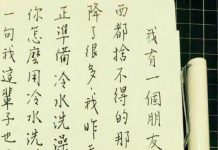 我有一個朋友
西都捨不得的那
降了很多，我昨天
正準備冷水洗澡
你怎麼用冷水洗
一句我這輩子也